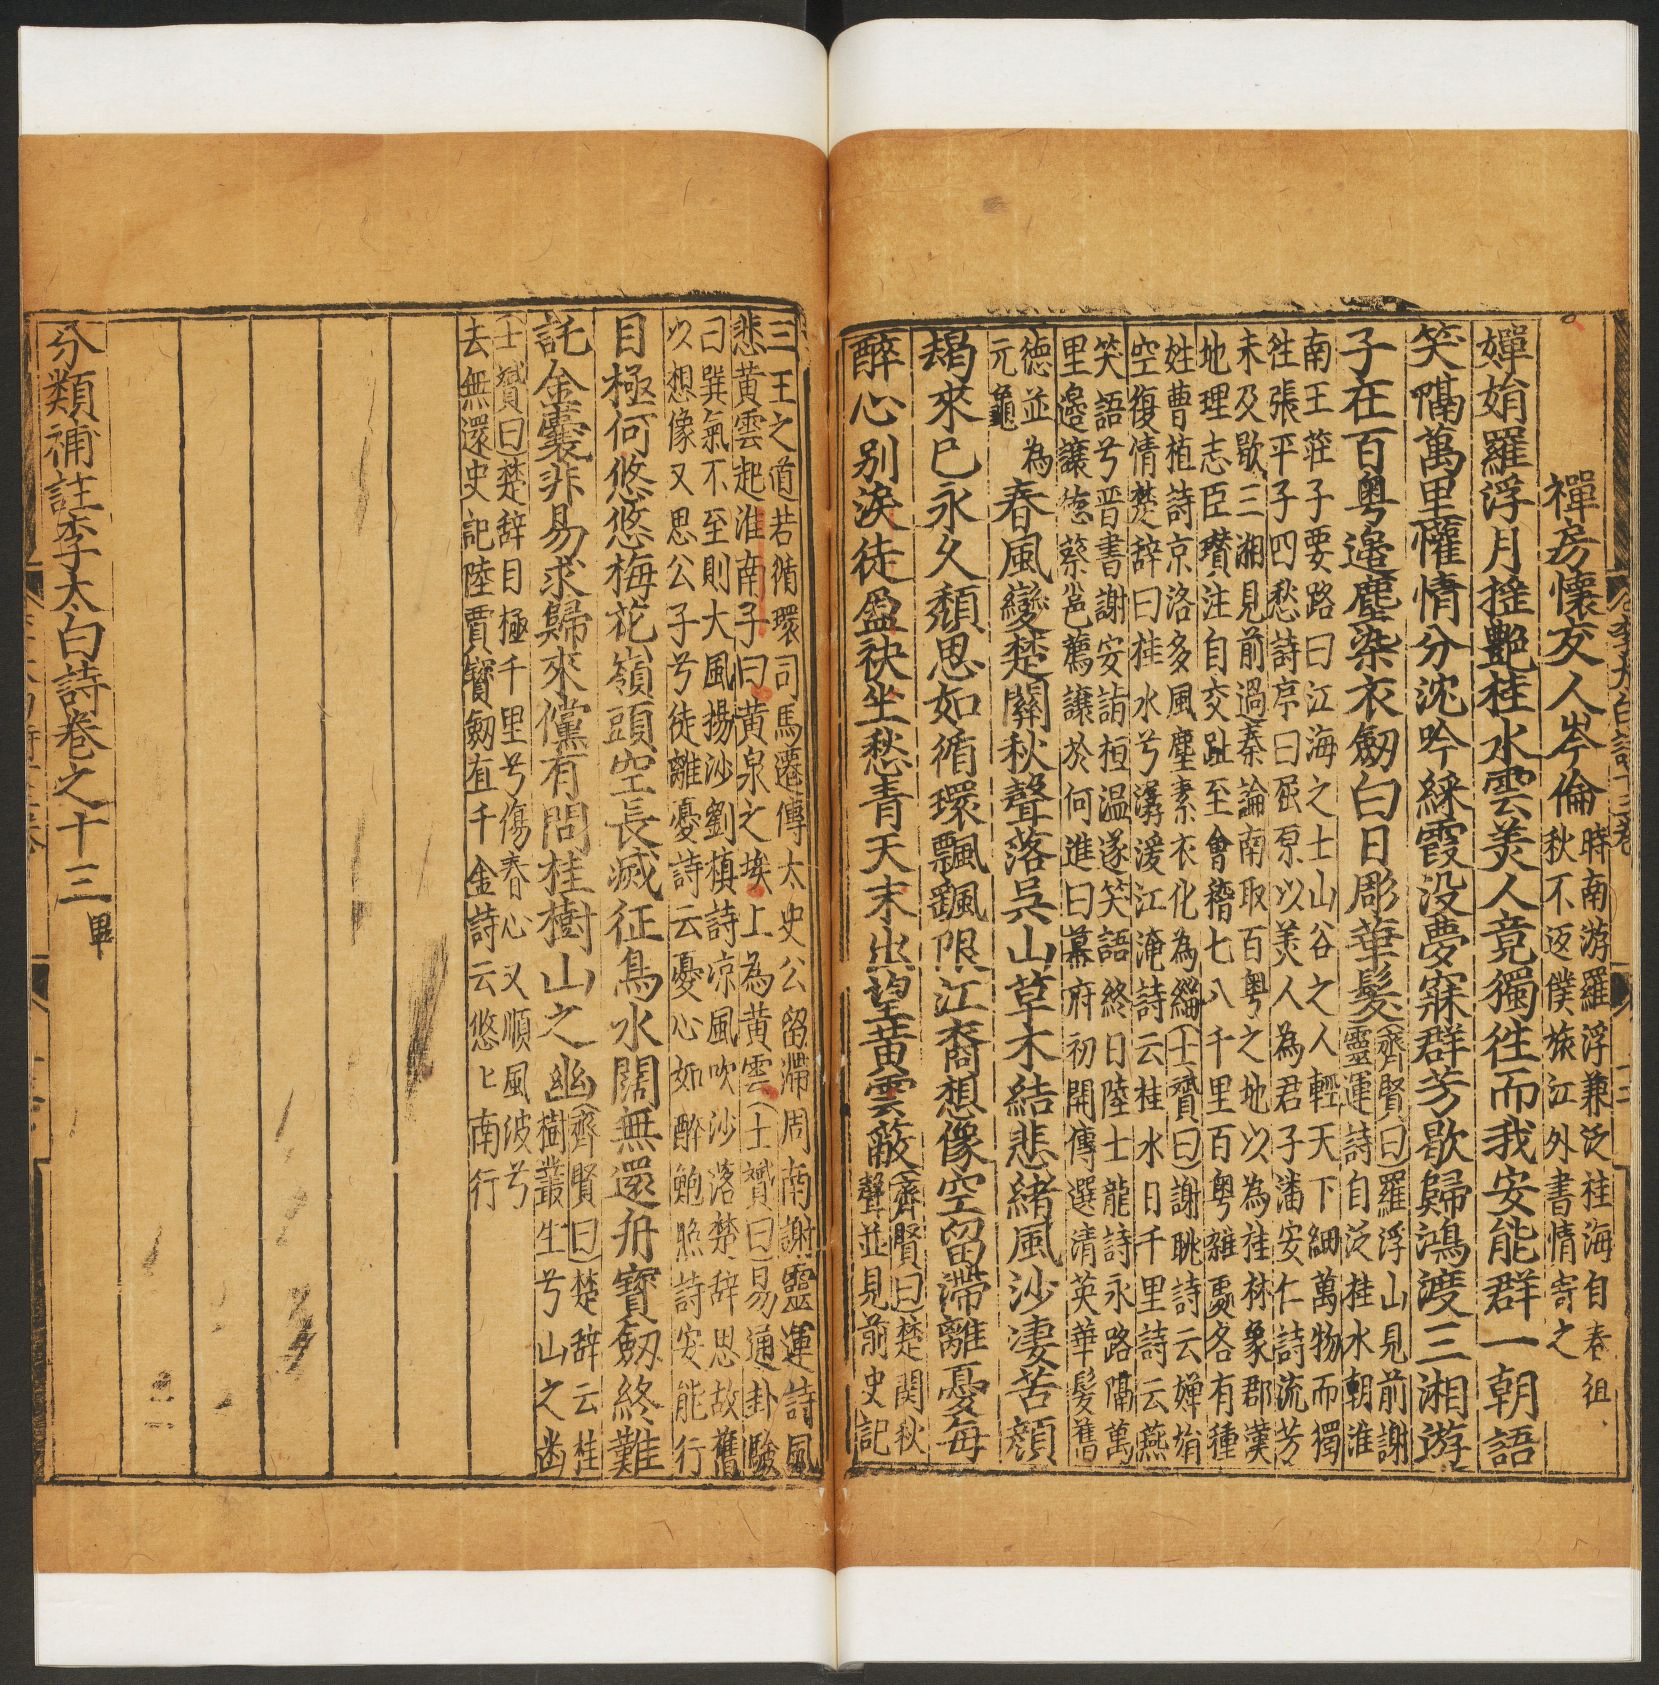 禪房懷友人岑倫時南游羅浮兼泛桂海自春徂秋不返僕旅江外書情寄之
嬋娟羅浮月搖艷桂水雲美人竟獨往而我安能群一朝語
笑隔萬里懽情分沈吟綵霞没夢寐群芳歇歸鴻渡三湘游
子在百粤邊塵染衣劒白日彫華髮齊賢曰羅浮山見前謝靈運詩自泛桂水朝淮
南王莊子要路曰江海之士山谷之人輕天下細萬物而獨
徃張平子四愁詩序曰屈原以美人為君子潘安仁詩流芳
未及歇三湘見前過秦論南取百粤之地以為桂林象郡漢
地理志臣瓉注自交趾至會稽七八千里百粤雜處各有種
姓曹植詩京洛多風塵素衣化為緇士贇曰謝眺詩云嬋娟
空復情楚辭曰桂水兮潺湲江淹詩云桂水日千里詩云燕
笑語兮晋書謝安詣桓温遂笑語終日陸士龍詩永路隔萬
里邊讓㤀蔡邕薦讓於何進曰幕府初開傳選清英華髪舊
德並為元龜
春風變楚關秋聲落吳山草木結悲緒風沙凄苦顔
朅來已永久頽思如循環飄飄限江裔想像空留滯離憂每
醉心别淚徒盈袂坐愁青天末出望黄雲蔽齊賢曰楚関秋聲並見前史記
三王之道若循環司馬遷傳太史公留滯周南謝靈運詩風
悲黄雲起淮南子曰黄泉之埃上為黄雲士贇曰易通卦驗
曰巽氣不至則大風揚沙劉楨詩凉風吹沙落楚辭思故舊
以想像又思公子兮徒離憂詩云憂心如醉鮑照詩安能行
目極何悠悠梅花嶺頭空長滅征鳥水闊無還舟寶劒終難
託金囊非易求歸來儻有問桂樹山之幽齊賢曰楚辞云桂樹叢生兮山之幽
士贇曰楚辞目極千里兮傷春心又順風波兮
去無還史記陸賈寶劒直千金詩云悠〻南行
分類補註李太白詩卷之十三畢